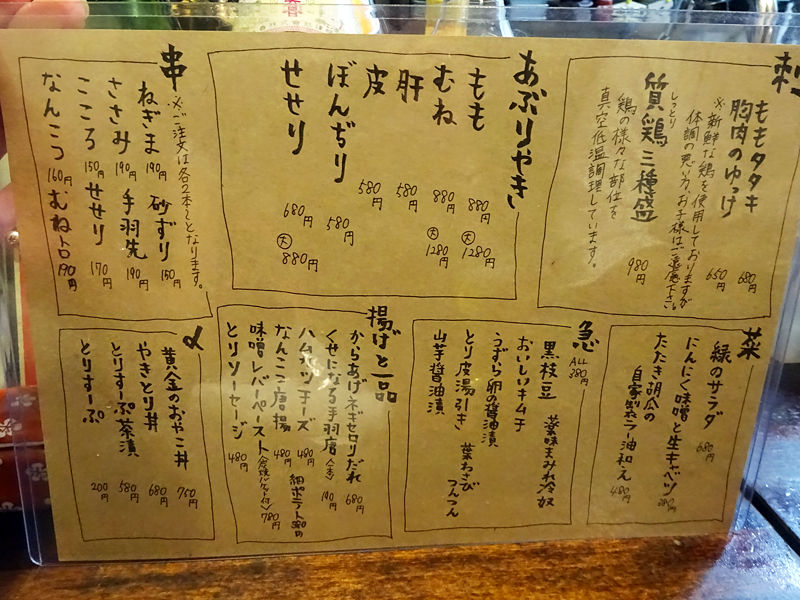 刺
ももタタキ 680円
胸肉のゆっけ 650円
※新鮮な鶏を使用しておりますが
体調の悪い方、お子様はご遠慮下さい。
しっとり
質鶏三種盛 980円
鶏の様々な部位を
真空低温調理しています。
あぶりやき
もも 880円 大 1280円
むね 880円 大 1280円
肝 580円
皮 580円
ぼんぢり 580円
せせり 680円 大 880円
串
※ご注文は各2本〜となります。
ねぎま 190円 砂ずり 150円
ささみ 190円 手羽先 190円
こころ 150円 せせり 170円
なんこつ 160円 むねトロ 190円
菜
緑のサラダ 680円
にんにく味噌と生キャベツ 380円
たたき胡瓜の
自家製ラー油和え 480円
急
ALL 380円
黒枝豆 薬味まみれ冷奴
おいしいキムチ
うずら卵の醤油漬
とり皮湯引き 葉わさび
山芋醤油漬 つんつん
揚げと一品
からあげネギセロリだれ 680円
くせになる手羽唐〈1本〉 190円
ハムカツチーズ 480円 細ポテト 380円
なんこつ唐揚 480円
味噌レバーペースト〈バケット付〉 780円
とりソーセージ 480円
〆
黄金のおやこ丼 750円
やきとり丼 680円
とりすーぷ茶漬 580円
とりすーぷ 200円